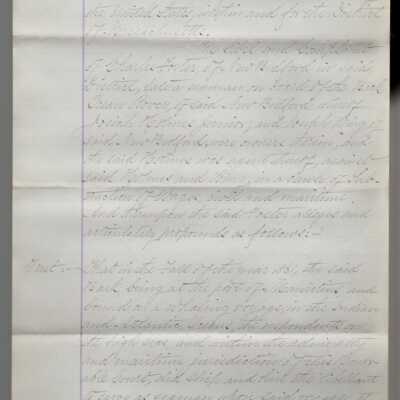 the United States within and for the District
of Massachusetts.
The libel and complaint
of Charles Foster, of New Bedford in said
District, late a seaman on board of the Bark
Ocean Rover, of said New Bedford, whereof
Josiah Holmes junior, and Joseph King of
said New Bedford, were owners therein, and
the said Holmes was agent thereof, against
said Holmes and King, in a cause of Sub-
traction of Wages civil and maritime.
And thereupon the said Foster alleges and
articulately propounds as follows:—
First:— That in the Fall of the year 1861, the said
Bark being at the port of and
bound on a whaling voyage, in the Indian
and Atlantic Oceans, the respondents on
the high seas, and within the admiralty
and maritime jurisdiction of this Honor-
able Court, did ship and hire the libellant
to serve as seaman upon said voyage, at